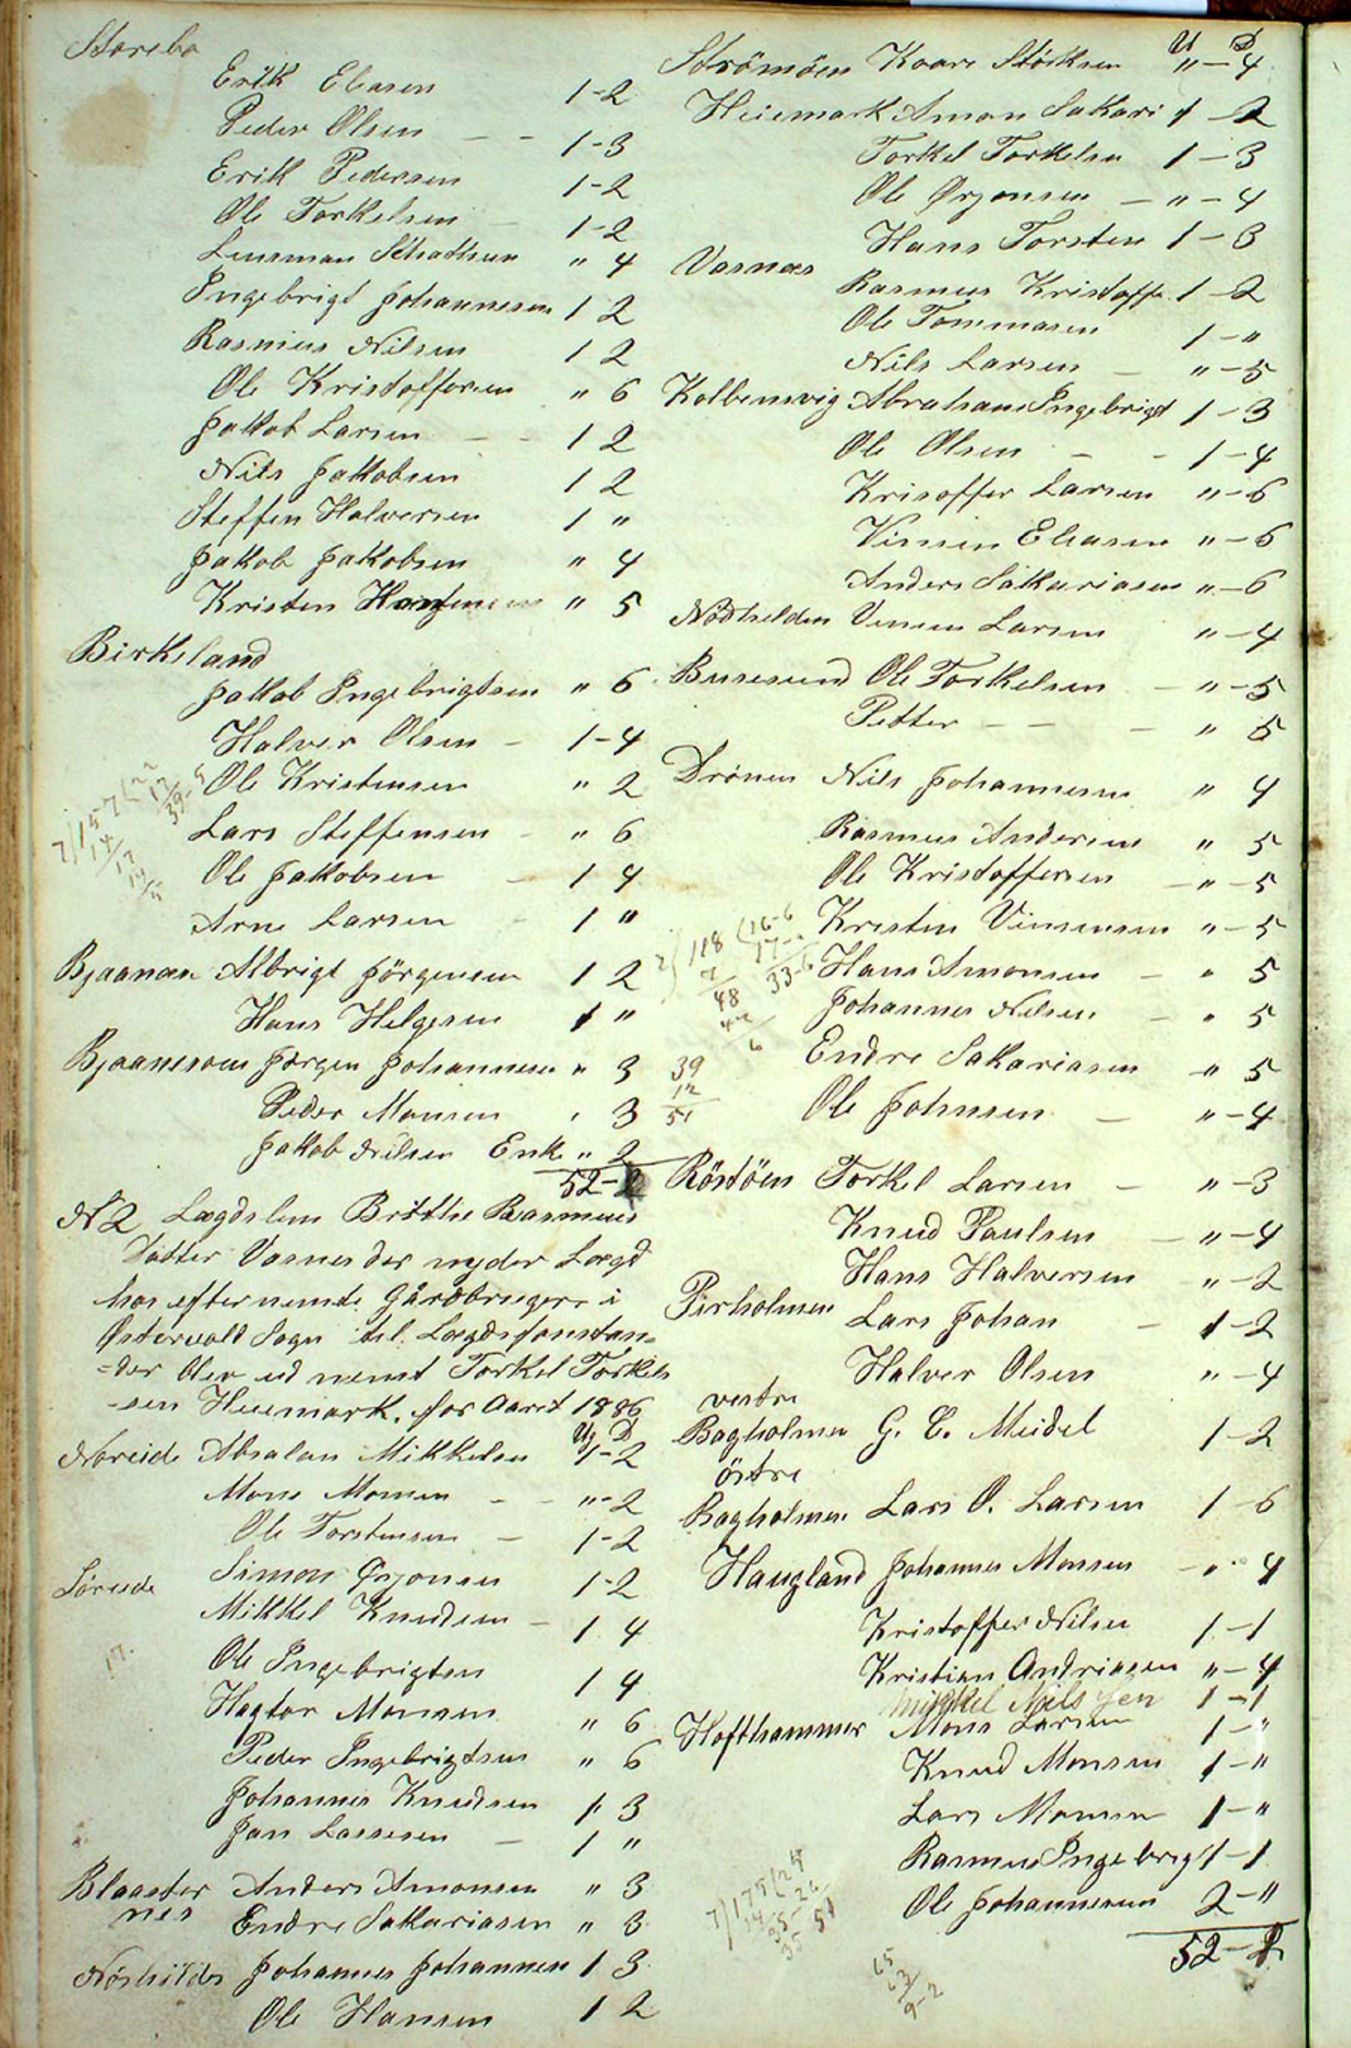 Storebø
Erik Eliasen 1-2
Peder Olsen - - 1-3
Erik Pedersen 1-2
Ole Torkelsen - 1-2
Lensman Schathun " 4
Ingebrigt Johannesen 1 2
Rasmus Nilsen 1 2
Ole Kristoffersen " 6
Jakob Larsen - - 1 2
Nils Jakobsen 1 2
Steffen Halversen 1 "
Jakob Jakobsen " 4
Kristen " 5
Birkeland
Jakob Ingebrigtsen " 6
Halver Olsen - 1-4
Ole Kristensen " 2
Lars Steffensen - " 6
Ole Jakobsen - 1 4
Arne Larsen - 1 "
Bjaanæs Albrigt Jörgensen 1 2
Hans Helgesen 1 "
Bjaanesøen Jørgen Johannesen " 3
Peder Monsen " 3
Jakob Nilsen Enke " 2
52-2
N 2 Lægdslem Brithe Rasmus
Datter Vasnes der nyder Lægd
hos efternemte Gårdbrugere i
Østervold Sogn til Lægdsfonstan=
=der blev ud nemt Torkel Torkels
-sen Heiemark, for Aaret 1886
U D
Noreide Absalon Mikkelsen 1-2
Mons Monsen - - "-2
Ole Torstensen - 1-2
Søreide Simon Ørjonsen 1-2
Mikkel Knudsen - 1 4
Ole Ingebrigtsen 1 4
Hagtor Monsen " 6
Peder Ingebrigtsen " 6
Johannes Knudsen 1 3
Jan Lassesen - 1 "
Blaaster Anders Amonsen " 3
nes Endre Sakariasen " 3
Nöshilder Johannes Johannesen 1 3
Ole Hansen 1 2
7/157(22
14/17
17
14/5
39-5
17.
U D
Strömöen Kaare Störksen "-4
Heiemark Amon Sakari 1-2
Torkel Torkelsen 1-3
Ole Ørjonsen - "-4
Hans Torsten 1-3
Vasnæs Rasmus Kristoffe 1-2
Ole Tommasen 1-"
Nils Larsen - "-5
Kolbensvig Abraham Ingebrigt 1-3
Ole Olsen - - 1-4
Krisoffer Larsen "-6
Vinsen Eliasen "-6
Anders Sakariasen "-6
Nödhelden Vinsen Larsen "-4
Buresund Ole Torkelsen - "-5
Petter - - - " 5
Drönen Nils Johannesen " 4
Rasmus Andersen " 5
Ole Kristoffersen -"-5
Kristen Vinsensen "-5
Hans Amonsen - " 5
Johannes Nilsen - " 5
Endre Sakariasen -" 5
Ole Johnsen - "-4
7/118(16-6
7
48
42
6
17-
33-6
39
12
51
Röstöen Torkel Larsen - "-3
Knud Paulsen - "-4
Hans Halversen "-2
Pirholmen Lars Johan - 1-2
Halver Olsen "-4
vestre
Bagholmen G. C. Meidel 1-2
östre
Bagholmen Lars O. Larsen 1-6
Haugland Johannes Monsen -" 4
Kristoffer Nilsen 1-1
Kristian Andriasen "-4
Mikkel Nilssen 1-1
Hofthammer Mons Larsen 1-"
Knud Monsen 1-"
Lars Monsen 1-"
Rasmus Ingebrigt 1-1
Ole Johannesen 2-"
52-2
7/175(24
14
35-26
35 51
65
63
9-2